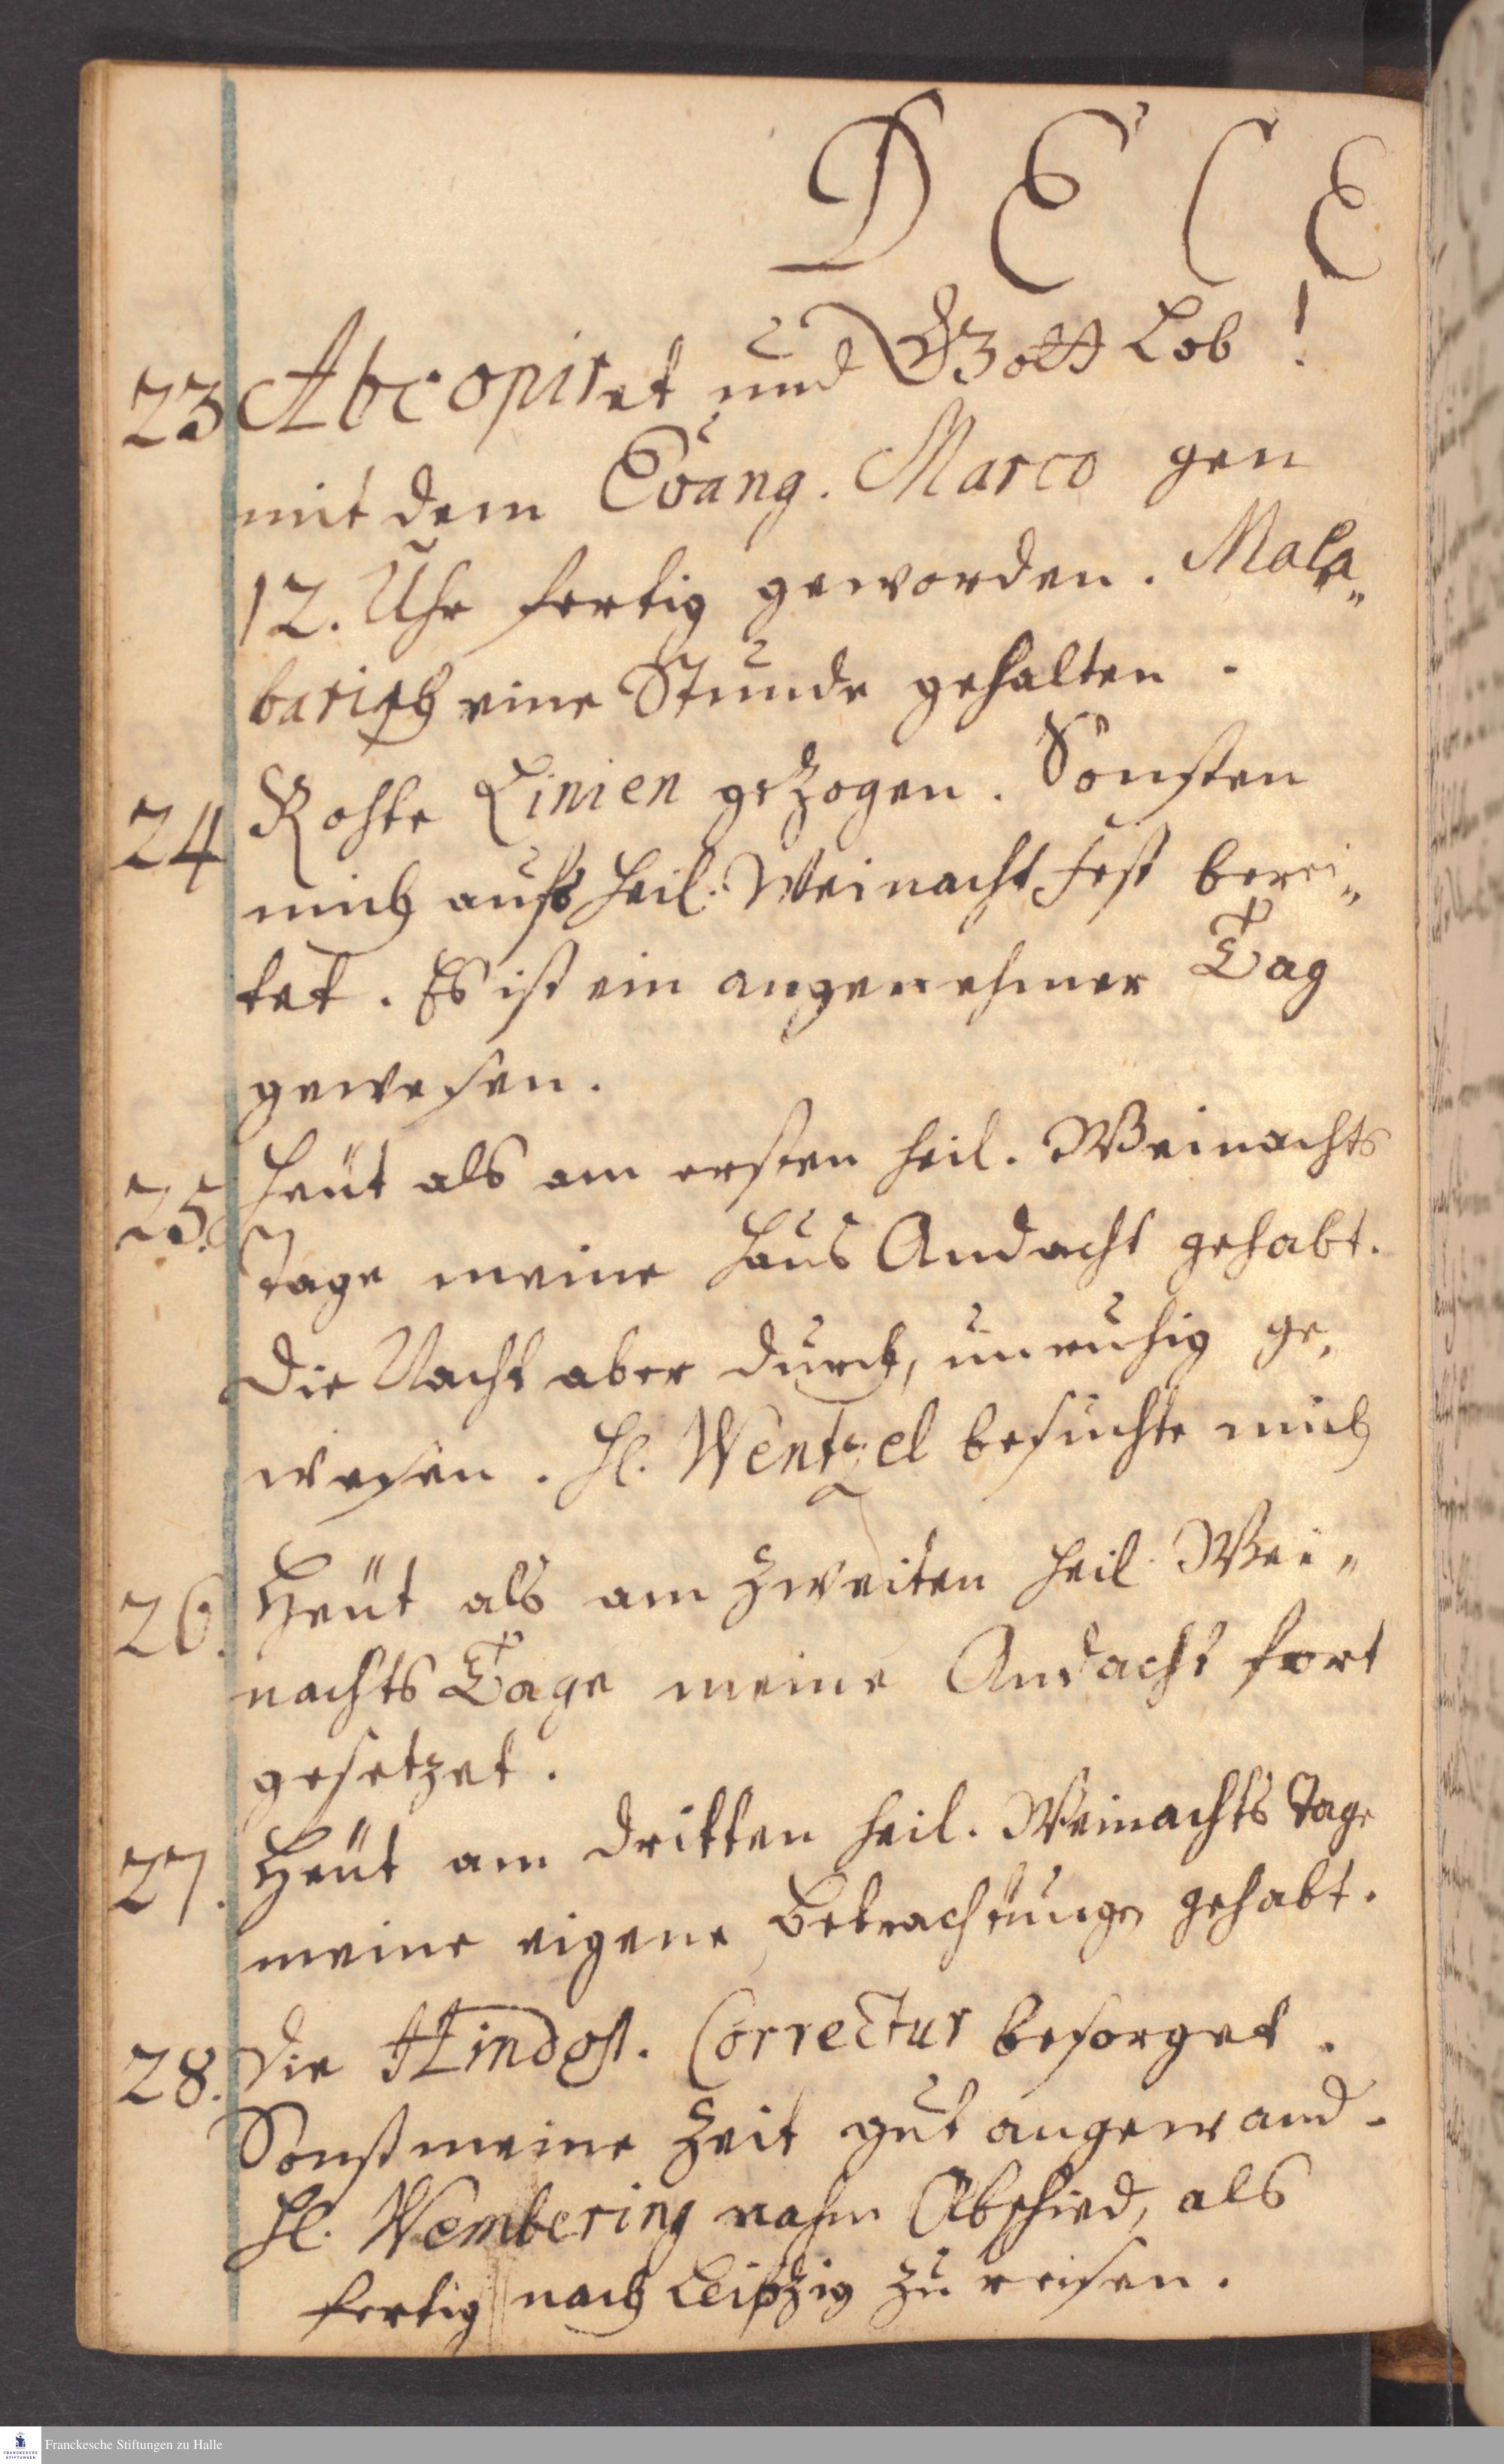 DECE
23 Abcopiret und Gott Lob!
mit dem Evang. Marco gen
12. Uhr fertig geworden. Mala„
barisch eine Stunde gehalten.
24 Rohte Linien gezogen. Sonsten
mich aufs heil. Weinacht Fest berei„
tet. Es ist ein angenehmer Tag
gewesen.
25. Heüt als am ersten heil. Weinachts
Tage meine Haus Andacht gehabt.
Die Nacht aber durch, unruhig ge,
wesen. H. Wentzel besuchte mich
26. Heüt als am zweiten heil. Wei„
nachts Tage meine Andacht fort
gesetzet.
27. Heüt am dritten heil. Weinachts Tage
meine eigene Betrachtungen gehabt.
28. Die Hindost. Correctur besorget.
Sonst meine Zeit gut angewand.
H. Wembering nahm Abschied, als
fertig nach Leipzig zu reisen.
Franckesche Stiftungen zu Halle